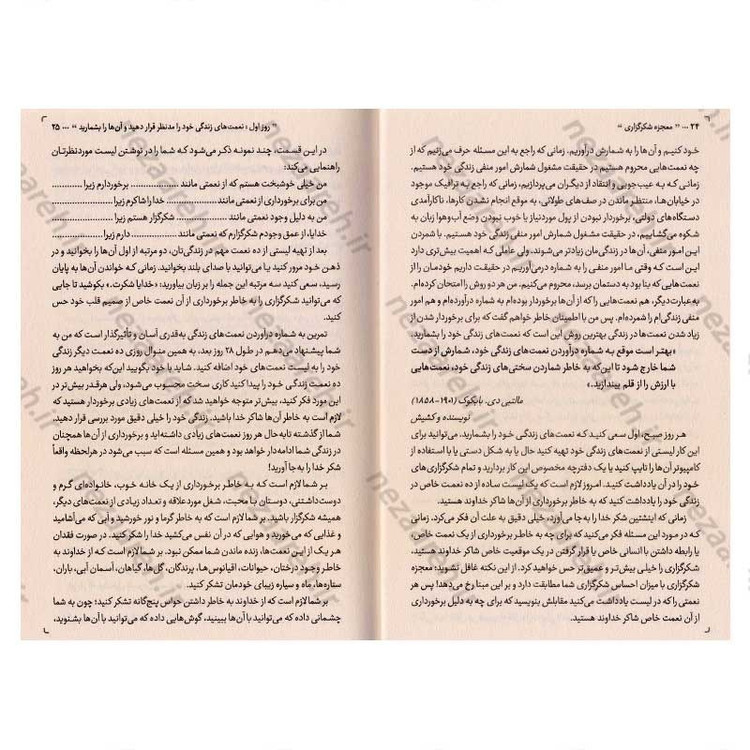 ۲۴ ... " معجزه شکرگزاری "
خود کنیم و آن‌ها را به شمارش درآوریم. زمانی که راجع به این مسئله حرف می‌زنیم که از
چه نعمت‌هایی محروم هستیم در حقیقت مشغول شمارش امور منفی زندگی خود هستیم.
زمانی که به عیب‌جویی و انتقاد از دیگران می‌پردازیم، زمانی که راجع به ترافیک موجود
در خیابان‌ها، منتظر ماندن در صف‌های طولانی، به موقع انجام نشدن کارها، ناکارآمدی
دستگاه‌های دولتی، برخوردار نبودن از پول موردنیاز یا خوب نبودن وضع آب‌وهوا زبان به
شکوه می‌گشاییم، در حقیقت مشغول شمارش امور منفی زندگی خود هستیم. با شمردن
این امور منفی، آن‌ها در زندگی‌مان زیادتر می‌شوند، ولی عاملی که اهمیت بیش‌تری دارد
این است که وقتی ما امور منفی را به شماره درمی‌آوریم در حقیقت داریم خودمان را از
نعمت‌هایی که بنا بود به دستمان برسد، محروم می‌کنیم. من هر دو روش را امتحان کرده‌ام.
به‌عبارت‌دیگر، هم نعمت‌هایی را که از آن‌ها برخوردار بوده‌ام به شماره درآورده‌ام و هم امور
منفی زندگی‌ام را شمرده‌ام. پس من با اطمینان خاطر خواهم گفت که برای برخوردار شدن از
زیاد شدن نعمت‌ها در زندگی بهترین روش این است که نعمت‌های زندگی خود را بشمارید.
«بهتر است موقع به شماره درآوردن نعمت‌های زندگی خود، شمارش از دست
شما خارج شود تا این‌که به خاطر شماردن سختی‌های زندگی خود، نعمت‌هایی
با ارزش را از قلم بیندازید.»
مالتبی دی. بابکوک (۱۹۰۱-۱۸۵۸)
نویسنده و کشیش
هر روز صبح، اول سعی کنید که نعمت‌های زندگی خود را بشمارید. می‌توانید برای
این کار لیستی از نعمت‌های زندگی خود تهیه کنید حال یا به شکل دستی یا با استفاده از
کامپیوتر آن‌ها را تایپ کنید یا یک دفترچه مخصوص این کار بردارید و تمام شکرگزاری‌های
خود را در آن یادداشت کنید. امروز لازم است که یک لیست ساده از ده نعمت خاص در
زندگی خود را یادداشت کنید که به خاطر برخورداری از آن‌ها شاکر خداوند هستید.
زمانی که اینشتین شکر خدا را به‌جا می‌آورد، خیلی دقیق به علت آن فکر می‌کرد. زمانی
که در مورد این مسئله فکر می‌کنید که برای چه به خاطر برخورداری از یک نعمت خاص،
یا رابطه داشتن با انسانی خاص یا قرار گرفتن در یک موقعیت خاص شاکر خداوند هستید،
شکرگزاری را خیلی بیش‌تر و عمیق‌تر حس خواهید کرد. از این نکته غافل نشوید؛ معجزه
شکرگزاری با میزان احساس شکرگزاری شما مطابقت دارد و بر این مبنا رخ می‌دهد! پس هر
نعمتی را که در لیست یادداشت می‌کنید مقابلش بنویسید که برای چه به دلیل برخورداری
از آن نعمت خاص شاکر خداوند هستید.
" روز اول ؛ نعمت‌های زندگی خود را مدنظر قرار دهید و آن‌ها را بشمارید " ... ۲۵
در این قسمت، چند نمونه ذکر می‌شود که شما را در نوشتن لیست موردنظرتان
راهنمایی می‌کند:
من خیلی خوشبخت هستم که از نعمتی مانند .................. برخوردارم زیرا ............
من برای برخورداری از نعمتی مانند .................. خدا را شاکرم زیرا ............
من به دلیل وجود نعمتی مانند .................. شکرگزار هستم زیرا ............
خدایا، از عمق وجودم شکرگزارم که نعمتی مانند .................. دارم زیرا ............
بعد از تهیه لیستی از ده نعمت مهم در زندگی‌تان، دو مرتبه از اول آن‌ها را بخوانید و در
ذهن خود مرور کنید یا می‌توانید با صدای بلند بخوانید. زمانی که خواندن آن‌ها به پایان
رسید، سعی کنید سه مرتبه این جمله را بر زبان بیاورید: «خدایا شکرت.» بکوشید تا جایی
که می‌توانید شکرگزاری را به خاطر برخورداری از آن نعمت خاص از صمیم قلب خود حس
کنید.
تمرین به شماره درآوردن نعمت‌های زندگی به‌قدری آسان و تأثیرگذار است که من به
شما پیشنهاد می‌دهم در طول ۲۸ روز بعد، به همین منوال روزی ده نعمت دیگر زندگی
خود را به لیست نعمت‌های خود اضافه کنید. شاید با خود بگویید این‌که بخواهید هر روز
ده نعمت زندگی خود را پیدا کنید کاری سخت محسوب می‌شود، ولی هرقدر بیش‌تر در
این مورد فکر کنید، بیش‌تر متوجه خواهید شد که از نعمت‌های زیادی برخوردارید که لازم
است به خاطر آن‌ها شاکر خدا باشید. زندگی خود را خیلی دقیق مورد بررسی قرار دهید.
شما از گذشته تابه حال هر روز نعمت‌های زیادی داشته‌اید و برخورداری از آن‌ها همچنان
در زندگی شما ادامه‌دار خواهد بود و همین مسئله است که سبب می‌شود در هرلحظه واقعاً
شکر خدا را به‌جا آورید!
بر شما لازم است که به خاطر برخورداری از یک خانه خوب، خانواده‌ای گرم و
دوست‌داشتنی، دوستان با محبت، شغل موردعلاقه و تعداد زیادی از نعمت‌های دیگر،
همیشه شکرگزار باشید. بر شما لازم است که به خاطر گرما و نور خورشید و آبی که می‌آشامید
و غذایی که می‌خورید و هوایی که در آن نفس می‌کشید خدا را شکر کنید. در صورت فقدان
هر یک از این نعمت‌ها، زنده ماندن شما ممکن نبود. بر شما لازم است که از خداوند به
خاطر وجود درختان، حیوانات، اقیانوس‌ها، پرندگان، گل‌ها، گیاهان، آسمان آبی، باران،
ستاره‌ها، ماه و سیاره زیبای خودمان تشکر کنید.
بر شما لازم است که از خداوند به خاطر داشتن حواس پنج‌گانه تشکر کنید؛ چون به شما
چشمانی داده که می‌توانید با آن‌ها ببینید، گوش‌هایی داده که می‌توانید با آن‌ها بشنوید،
nezaareh.ir